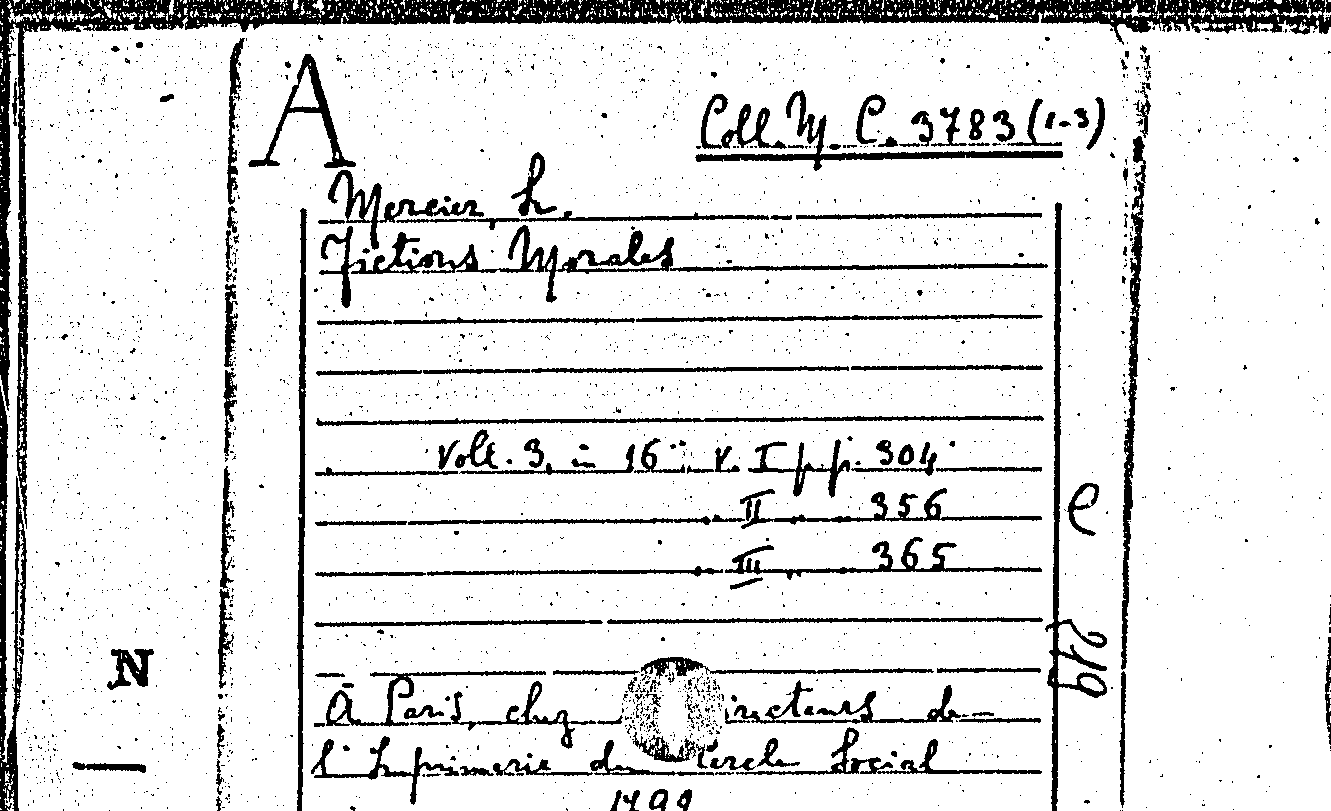 A
Coll. M. C. 3783 (1-3)
Mercier, L.
Fictions Morales
Vol. 3. in 16° v. I pp. 304
" II " 356
" III " 365
e
N
à Paris, chez irecteurs de
l'Imprimerie du Cercle Social